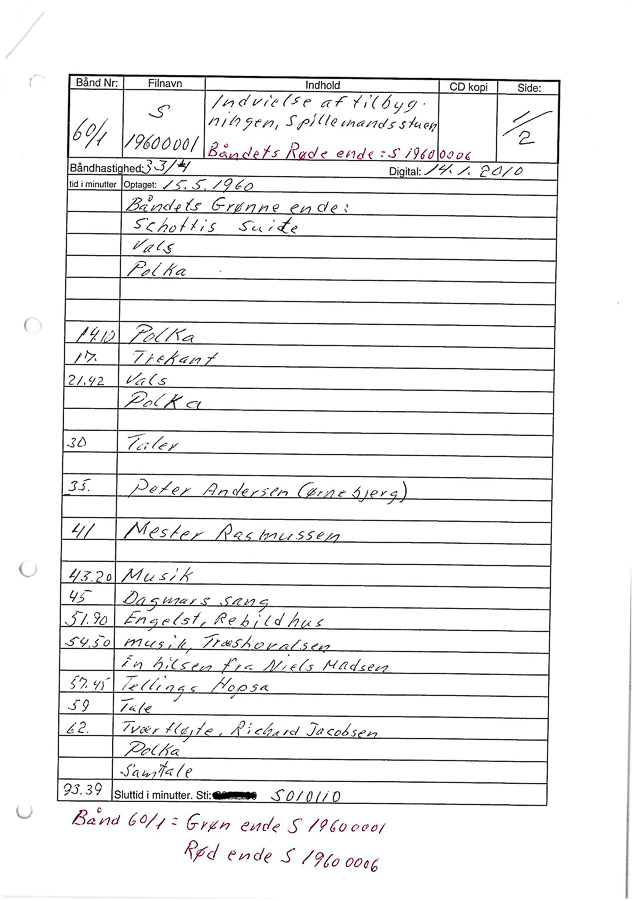 Bånd Nr: Filnavn Indhold CD kopi Side:
60/1 S 19600001 Indvielse af tilbyg-
ningen, Spillemandsstuen
Båndets Røde ende = S 19600006
1/2
Båndhastighed: 33/4 Digital: 14.1.2010
tid i minutter Optaget: 15.5.1960
Båndets Grønne ende:
Schottis Suite
Vals
Polka
14.10 Polka
17. Trekant
21.42 Vals
Polka
30 Taler
35. Peter Andersen (Ørnebjerg)
41 Mester Rasmussen
43.20 Musik
45 Dagmars sang
51.90 Engelst, Rebildhus
54.50 musik, Træshovalsen
En hilsen fra Niels Madsen
57.45 Tellings Hopsa
59 Tale
62. Tværfløjte, Richard Jacobsen
Polka
Samtale
93.39 Sluttid i minutter. Sti: S010110
Bånd 60/1 = Grøn ende S 19600001
Rød ende S 19600006